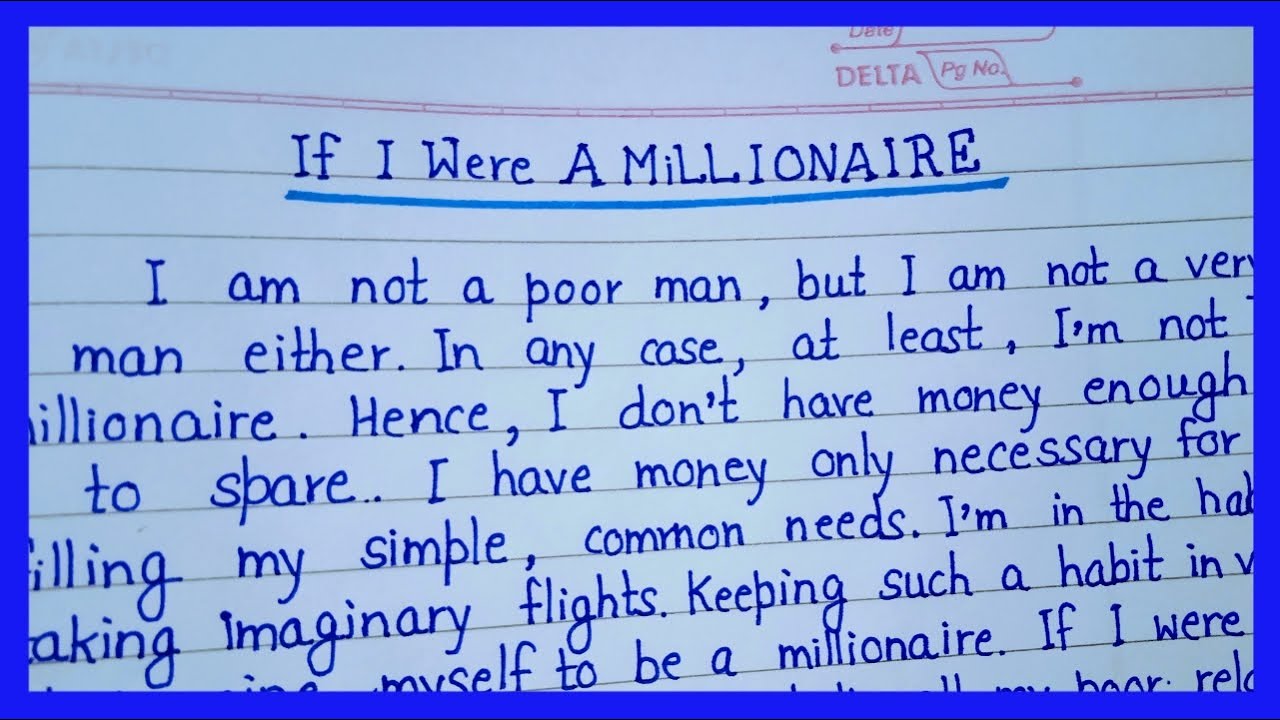 Date
DELTA Pg No.
If I Were A MiLLIONAIRE
I am not a poor man, but I am not a very
man either. In any case, at least, I'm not
illionaire. Hence, I don't have money enough
to spare.. I have money only necessary for
illing my simple, common needs. I'm in the
aking imaginary flights. Keeping such a habit in
myself to be a millionaire. If I were
my poor